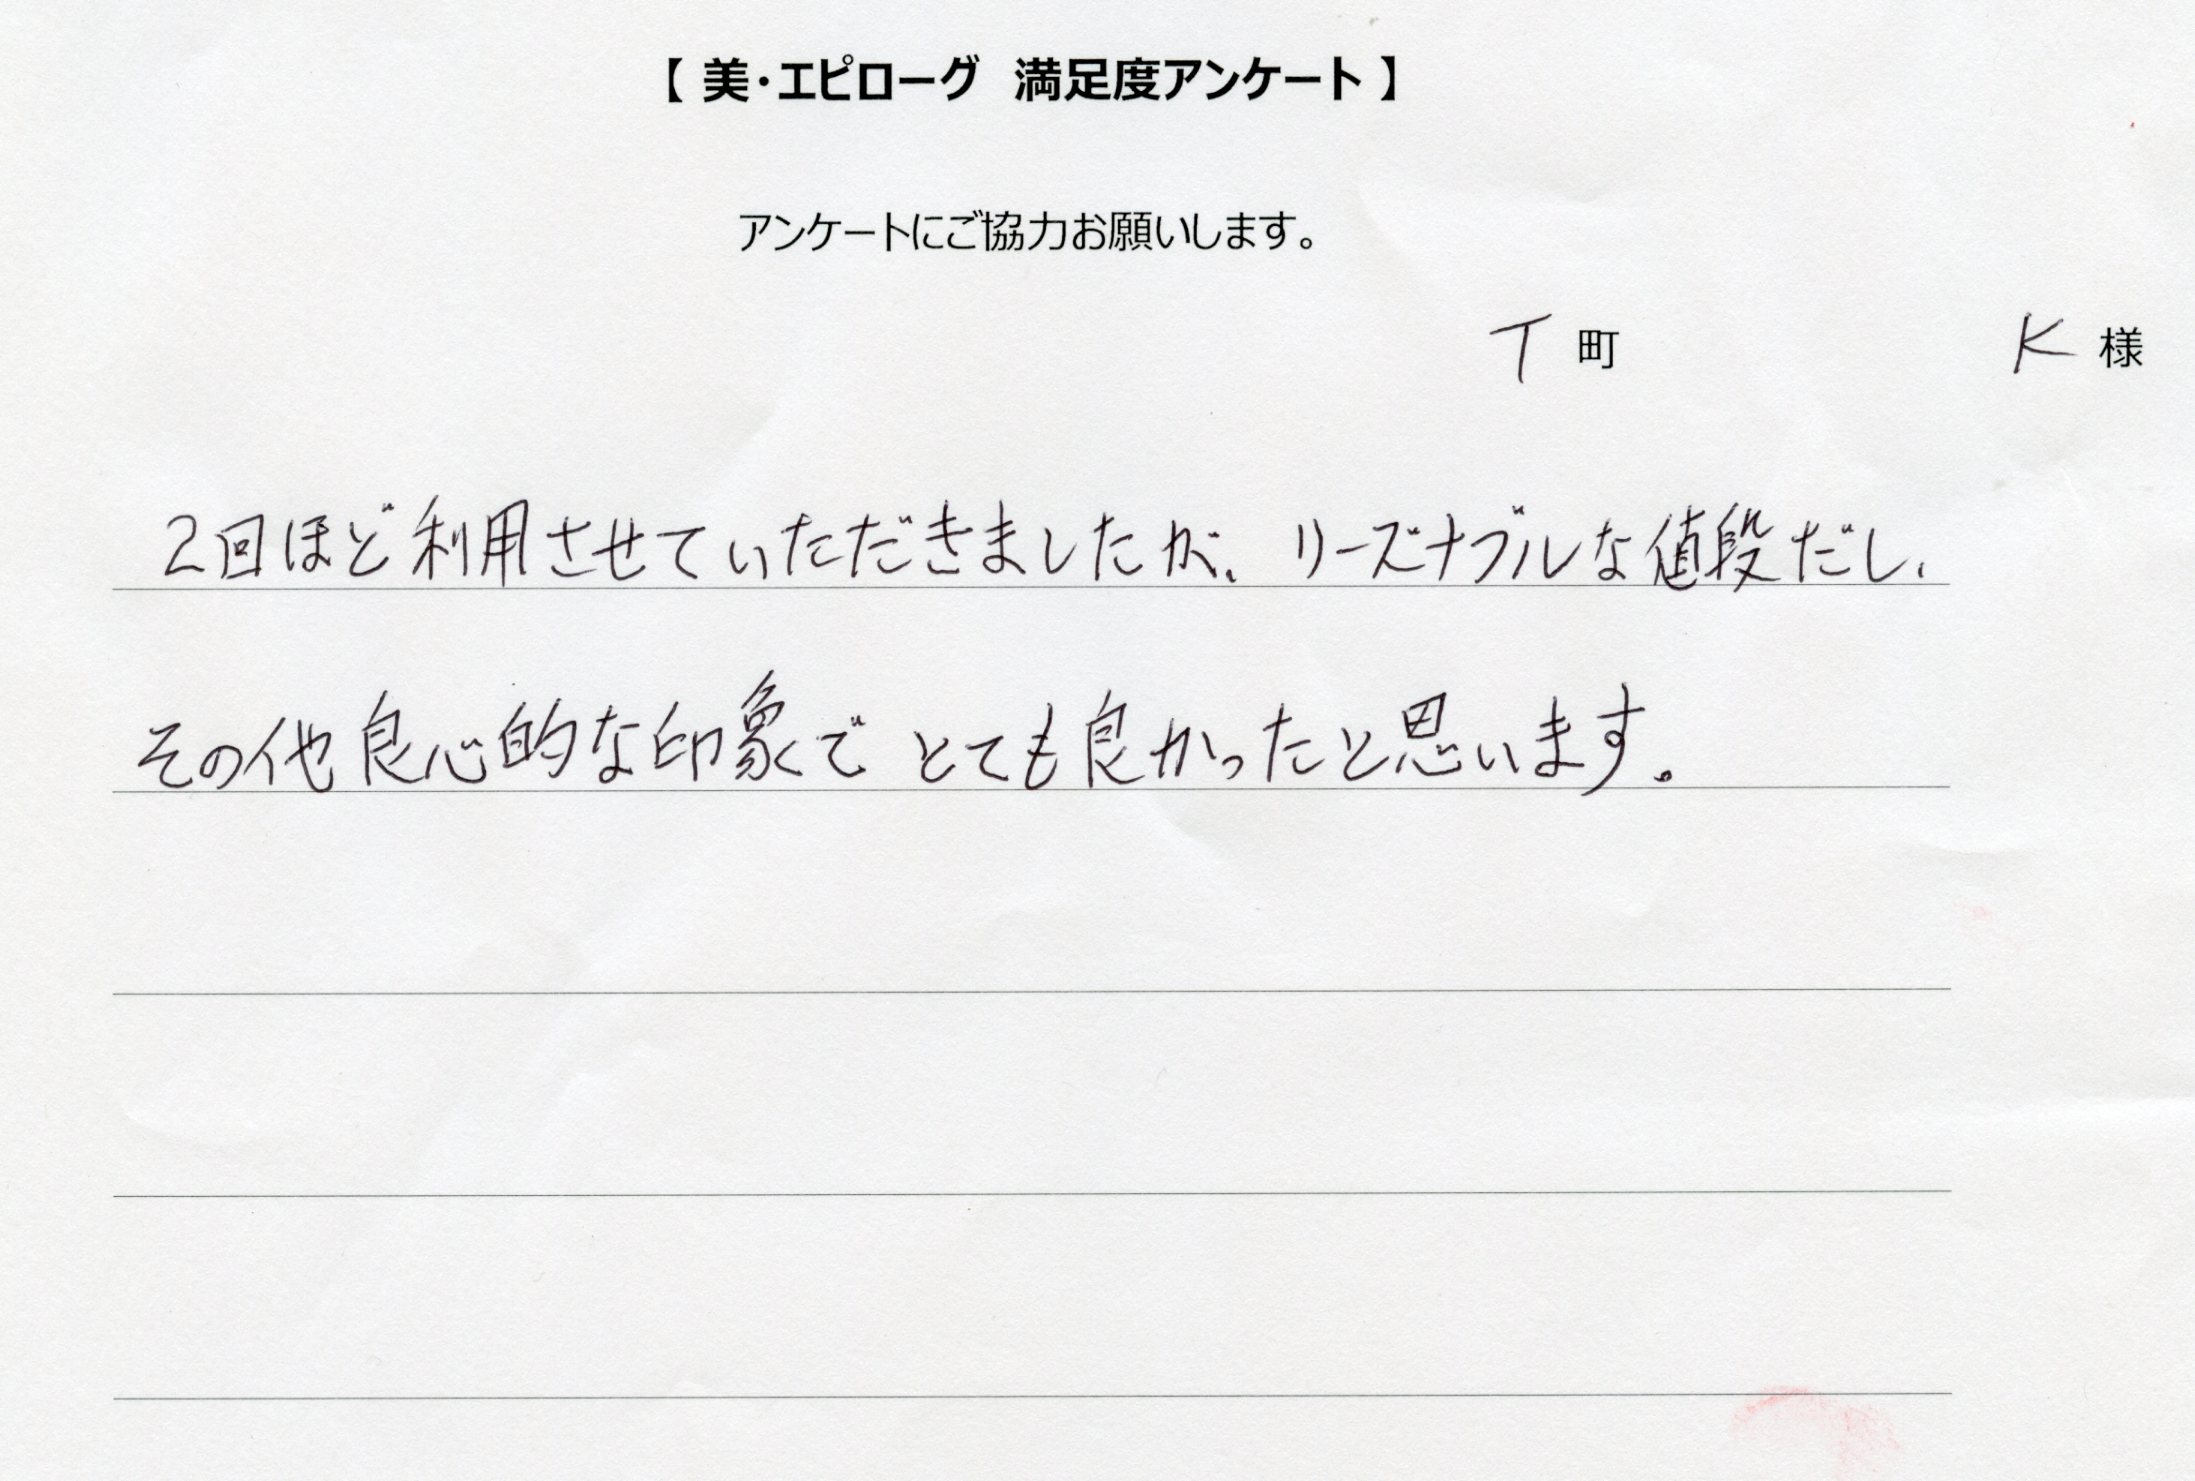 【 美・エピローグ　満足度アンケート 】
アンケートにご協力お願いします。
T 町　K 様
2回ほど利用させていただきましたが、リーズナブルな値段だし、
その他良心的な印象で とても良かったと思います。